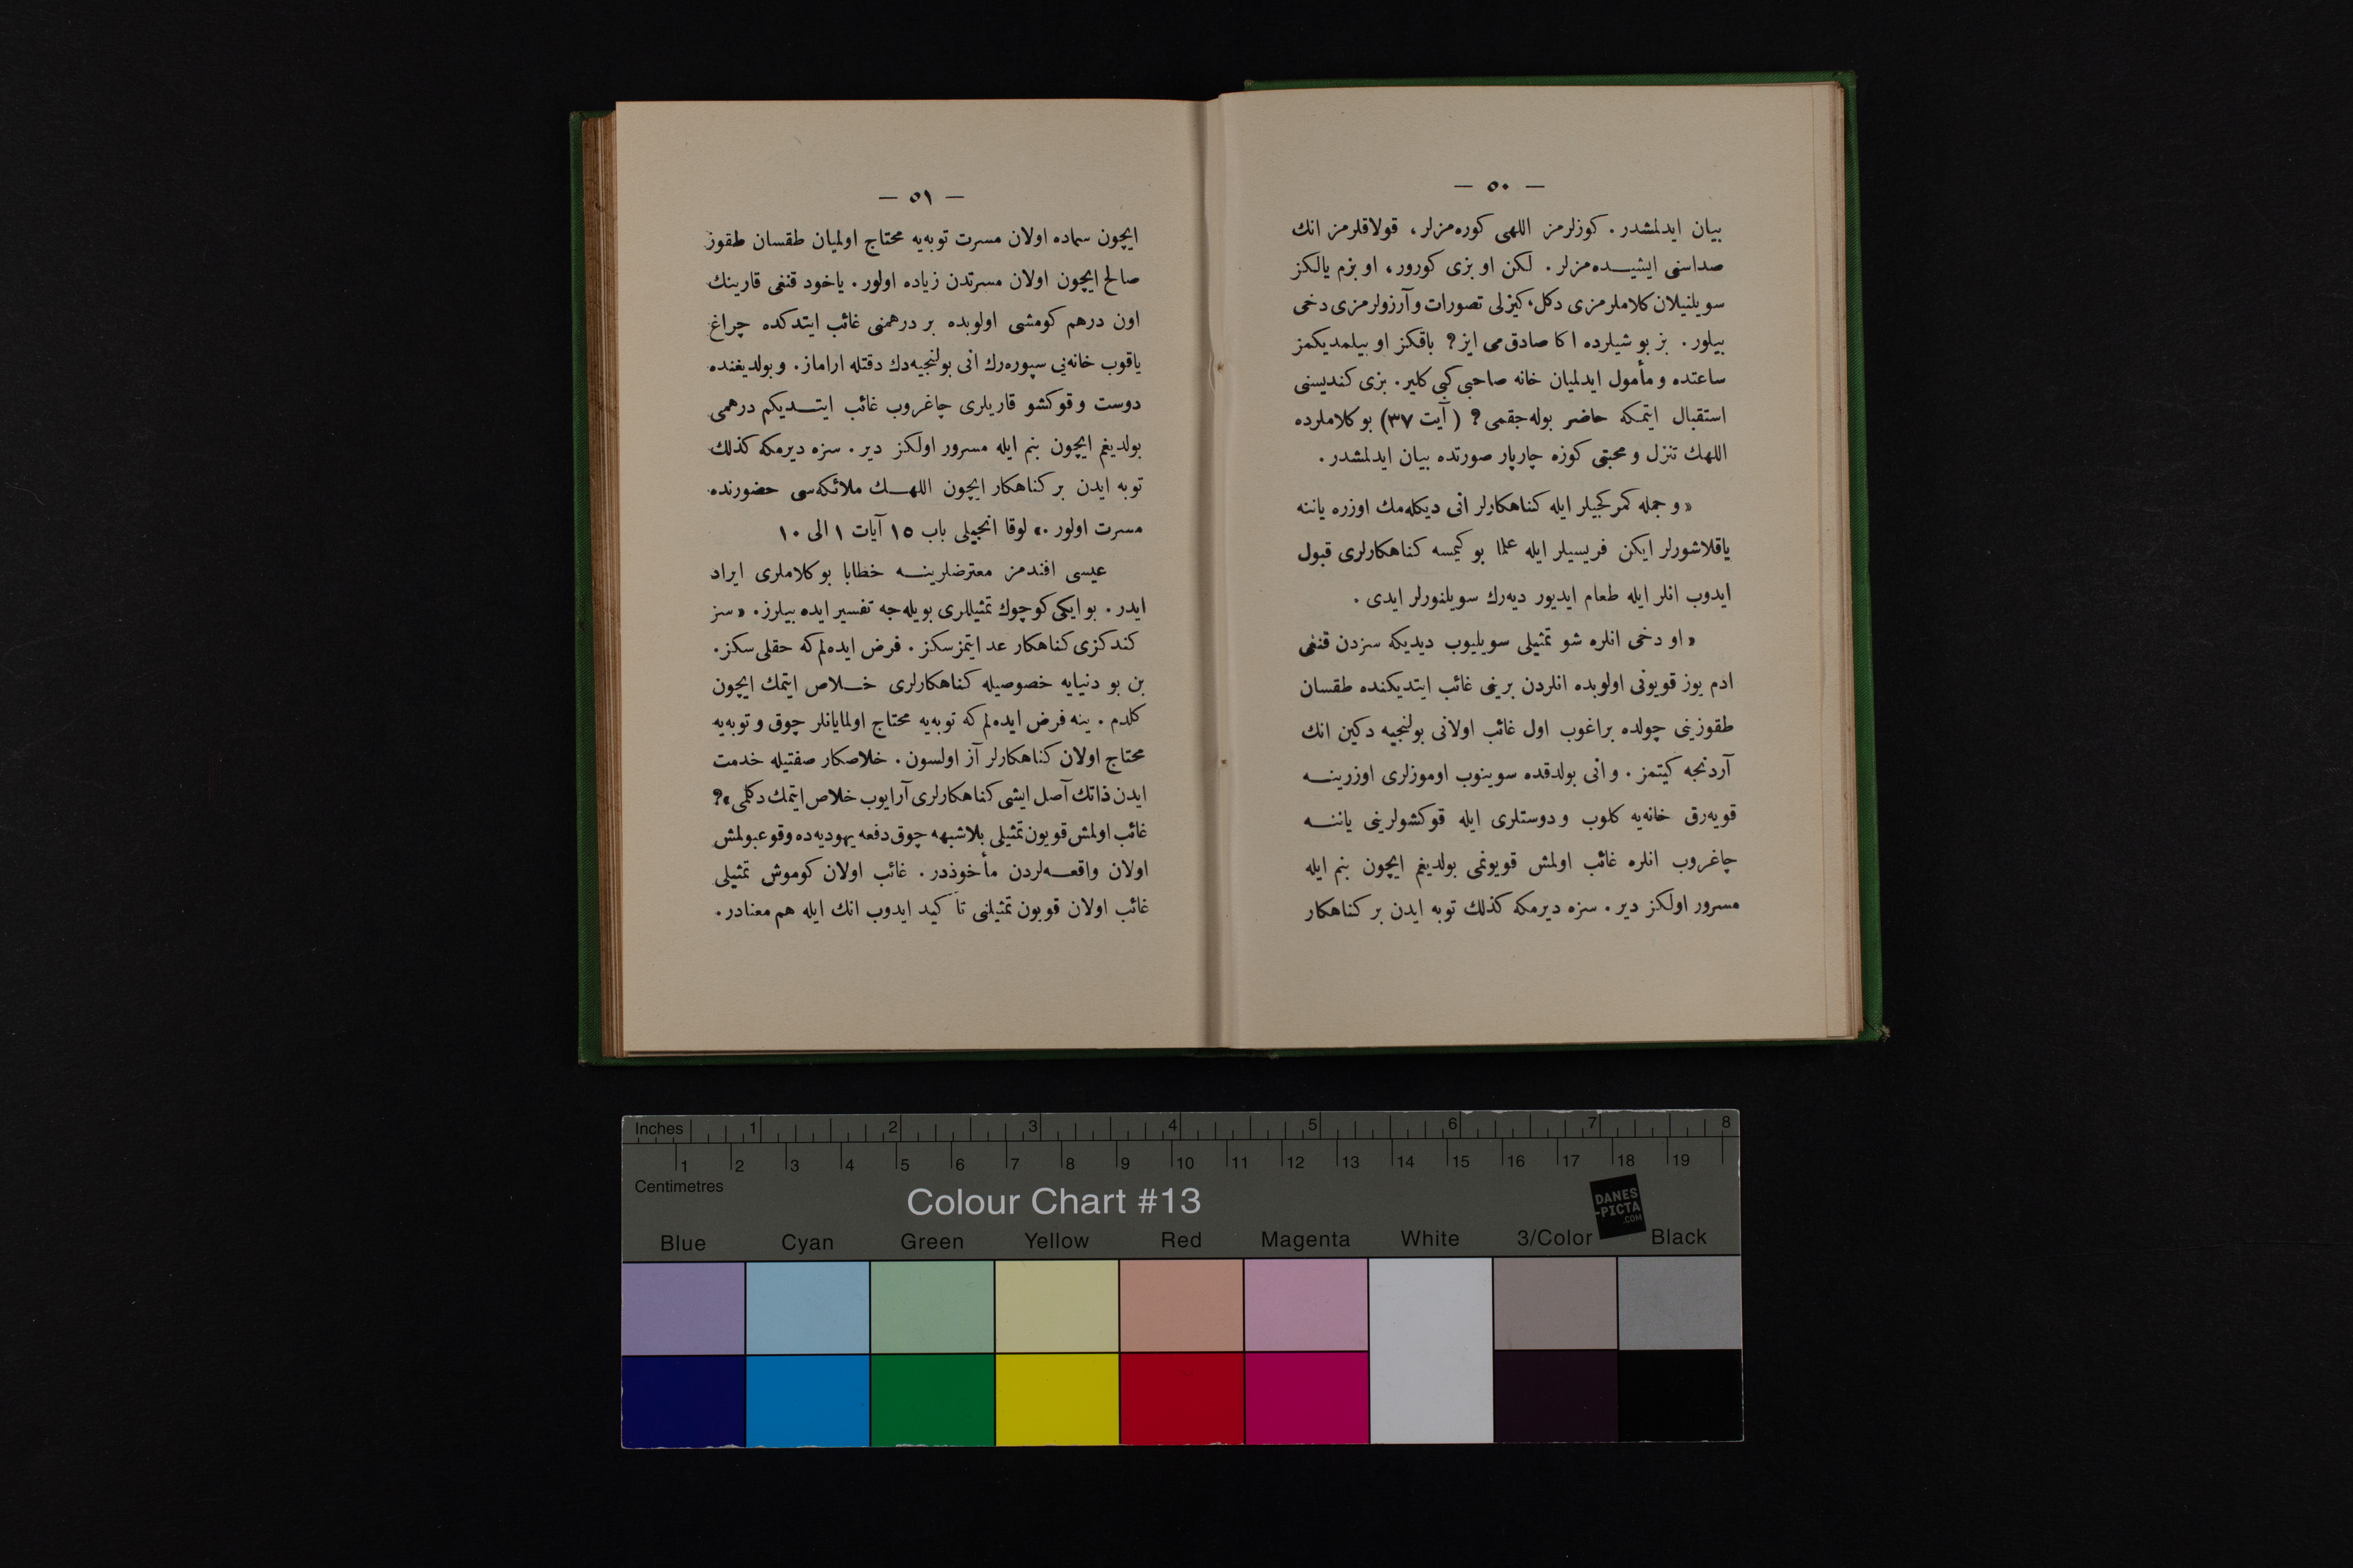 — ٥٠ —
بيان ايدلمشدر . كوزلرمز اللهى كوره‌مزلر ، قولاقلرمز انك
صداسنى ايشيده‌مزلر . لكن او بزى كورور ، او بزم يالكز
سويلنيلان كلاملرمزى دكل ، كيزلى تصورات و آرزولرمزى دخى
بيلور . بز بو شيلرده اكا صادق‌مى ايز ? باقكز او بيلمديكمز
ساعتده و مأمول ايدلميان خانه صاحبى كبى كلير . بزى كنديسنى
استقبال ايتمكه حاضر بوله‌جقمى ? ( آيت ٣٧) بو كلاملرده
اللهك تنزل و محبتى كوزه چارپار صورتده بيان ايدلمشدر .
« و جمله كمركجيلر ايله كناهكارلر انى ديكله‌مك اوزره ياننه
ياقلاشورلر ايكن فريسيلر ايله علما بو كيمسه كناهكارلرى قبول
ايدوب انلر ايله طعام ايديور ديه‌رك سويلنورلر ايدى .
« او دخى انلره شو تمثيلى سويليوب ديديكه سزدن قنغى
ادم يوز قويونى اولوبده انلردن برينى غائب ايتديكنده طقسان
طقوزينى چولده براغوب اول غائب اولانى بولنجيه دكين انك
آردنجه كيتمز . و انى بولدقده سوينوب اوموزلرى اوزرينه
قويه‌رق خانه‌يه كلوب و دوستلرى ايله قوكشولرينى ياننه
چاغروب انلره غائب اولمش قويونمى بولديغم ايچون بنم ايله
مسرور اولكز دير . سزه ديرمكه كذلك توبه ايدن بر كناهكار
— ٥١ —
ايچون سماده اولان مسرت توبه‌يه محتاج اولميان طقسان طقوز
صالح ايچون اولان مسرتدن زياده اولور . ياخود قنغى قارينك
اون درهم كومشى اولوبده بر درهمنى غائب ايتدكده چراغ
ياقوب خانه‌يى سپوره‌رك انى بولنجيه‌دك دقتله اراماز . و بولديغنده
دوست و قوكشو قاريلرى چاغروب غائب ايتديكم درهمى
بولديغم ايچون بنم ايله مسرور اولكز دير . سزه ديرمكه كذلك
توبه ايدن بر كناهكار ايچون اللهك ملائكه‌سى حضورنده
مسرت اولور .» لوقا انجيلى باب ١٥ آيات ١ الى ١٠
عيسى افندمز معترضلرينه خطابا بو كلاملرى ايراد
ايدر . بو ايكى كوچوك تمثيللرى بويله‌جه تفسير ايده بيلرز . « سز
كندكزى كناهكار عد ايتمزسكز . فرض ايده‌لم كه حقلى سكز .
بن بو دنيايه خصوصيله كناهكارلرى خلاص ايتمك ايچون
كلدم . ينه فرض ايده‌لم كه توبه‌يه محتاج اولمايانلر چوق و توبه‌يه
محتاج اولان كناهكارلر آز اولسون . خلاصكار صفتيله خدمت
ايدن ذاتك آصل ايشى كناهكارلرى آرايوب خلاص ايتمك دكلمى »?
غائب اولمش قويون تمثيلى بلاشبهه چوق دفعه يهوديه‌ده وقوعبولمش
اولان واقعه‌لردن مأخوذدر . غائب اولان كوموش تمثيلى
غائب اولان قويون تمثيلنى تأكيد ايدوب انك ايله هم معنادر .
Inches 1 2 3 4 5 6 7 8
1 2 3 4 5 6 7 8 9 10 11 12 13 14 15 16 17 18 19
Centimetres
Colour Chart #13
DANES
-PICTA
.COM
Blue Cyan Green Yellow Red Magenta White 3/Color Black